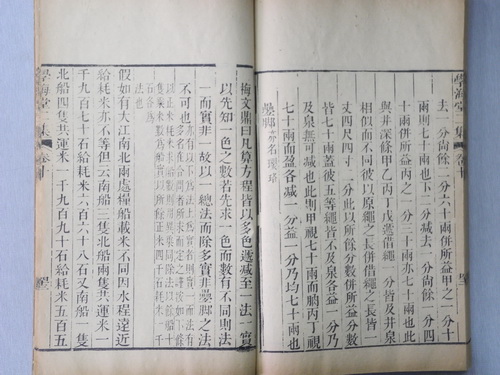 學海堂二集 卷十
去一分尙餘一分六十兩併所益甲之一分十
兩則七十兩也下二分減去一分尙餘一分四
十兩併所益丙之一分三十兩亦七十兩也此
與井深條甲乙丙丁戊遞借繩一分皆及井泉
相似而不同彼以原繩之長併借繩之長皆一
丈四尺四寸一分此以所餘分數併所益分數
皆七十兩也蓋彼五等繩皆不及泉各益一分乃
及泉無可減也此則甲七十兩而朒丙丁視
七十兩而盈各減一分益一分乃均七十兩也
疊腳 亦名
梅文鼎曰凡算方程皆以多色遞減至一法一實
以先知一色之數若先求一色而數有不同則法
一而實非一故以一總法而除多實非疊腳之法
不可也
假如有大江南北兩處撥船載米不同因水程遠近
給耗米亦不等但云南船三隻北船兩隻共運米一
千九百七十石給耗米六百六十八石又南船一隻
北船四隻共運米一千九百九十石給耗米五百五
學海堂二集 卷十